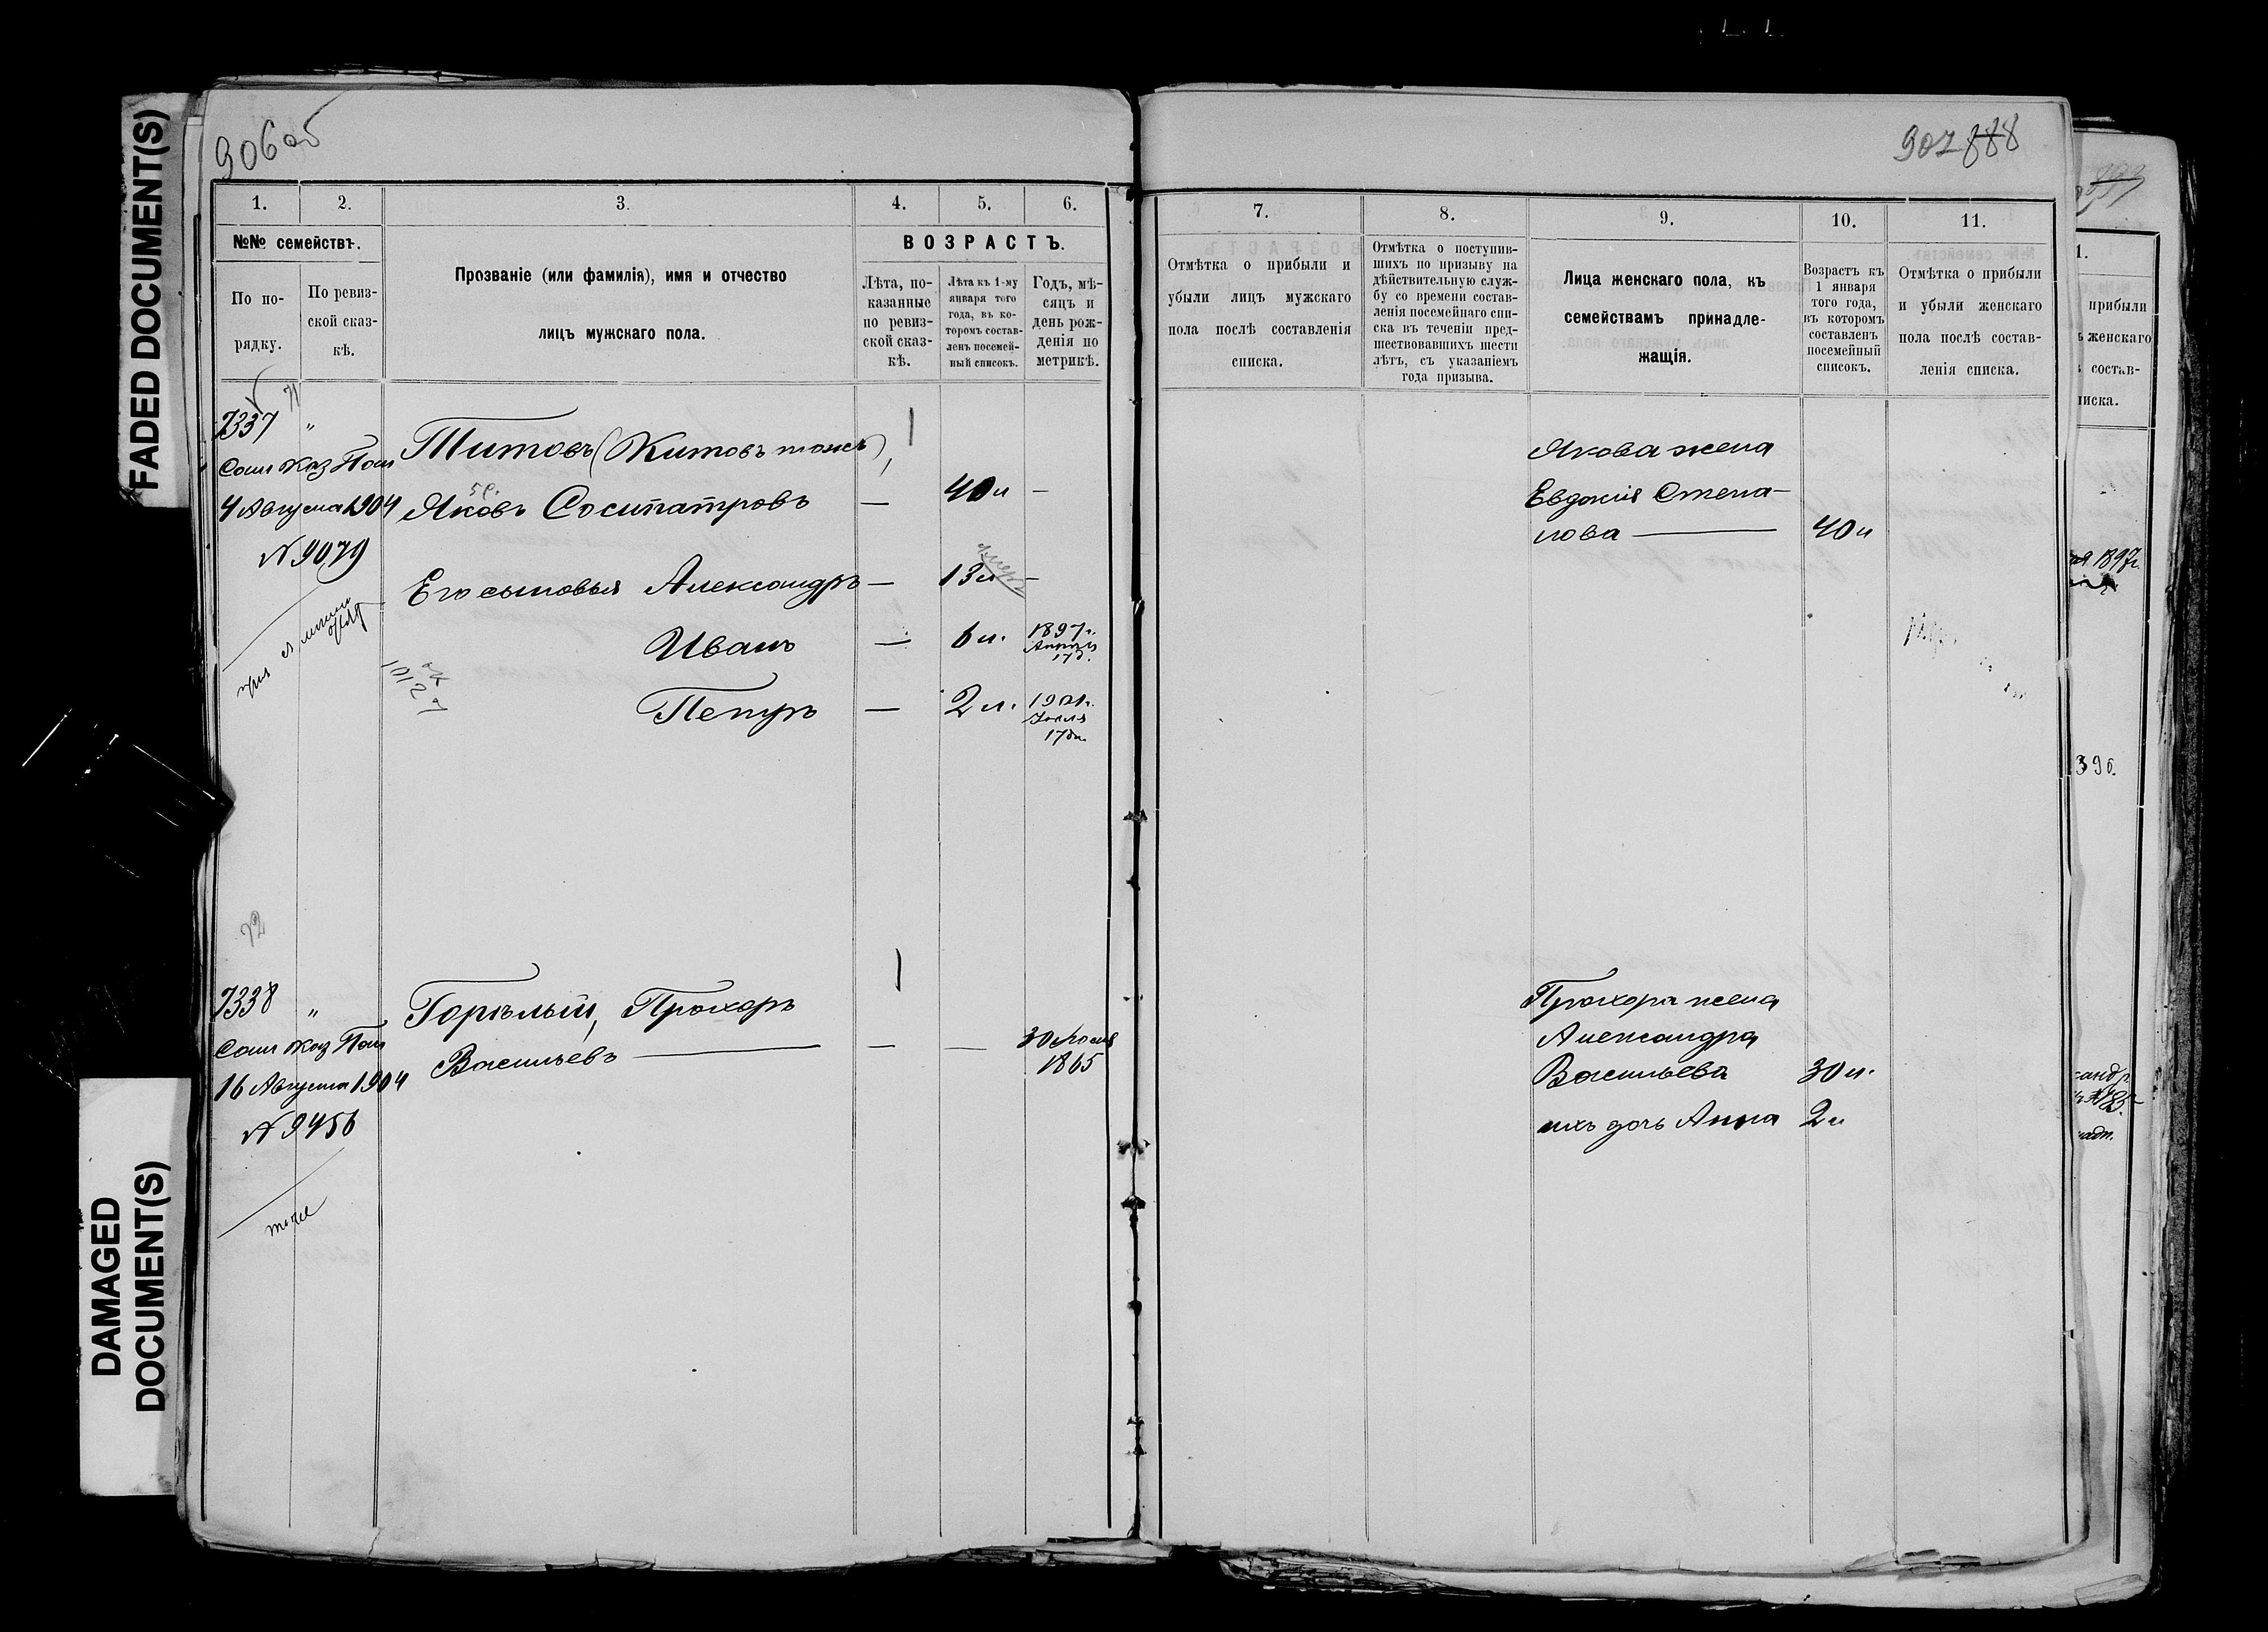 FADED DOCUMENT(S)
DAMAGED
DOCUMENT(S)
906 об
1.
2.
3.
4.
5.
6.
№№ семействъ.
По по-
рядку.
По ревиз-
ской сказ-
кѣ.
Прозваніе (или фамилія), имя и отчество
лицъ мужскаго пола.
ВОЗРАСТЪ.
Лѣта, по-
казанные
по ревиз-
ской сказ-
кѣ.
Лѣта къ 1-му
января того
года, въ ко-
торомъ состав-
ленъ посемей-
ный списокъ.
Годъ, мѣ-
сяцъ и
день рож-
денія по
метрикѣ.
71
7337 "
Титовъ (Китовъ тожъ),
Соил Каз Пал
4 Августа 1904
Яковъ Сосипатровъ — 40 л —
N 9079
Его сыновья Александръ — 13 л —
Иванъ — 6 л. 1897 г.
Апрѣля
17 д.
Петръ — 2 л. 1901 г.
Іюля
17 дн.
72
7338 "
Горѣлый, Прохоръ
Соил Каз Пал
Васильевъ — — — 30 Іюля
1865
16 Августа 1904
N 9456
907 888
7.
8.
9.
10.
11.
Отмѣтка о прибыли и
убыли лицъ мужскаго
пола послѣ составленія
списка.
Отмѣтка о поступив-
шихъ по призыву на
дѣйствительную служ-
бу со времени состав-
ленія посемейнаго спи-
ска въ теченіи пред-
шествовавшихъ шести
лѣтъ, съ указаніемъ
года призыва.
Лица женскаго пола, къ
семействамъ принадле-
жащія.
Возрастъ къ
1 января
того года,
въ которомъ
составленъ
посемейный
списокъ.
Отмѣтка о прибыли
и убыли женскаго
пола послѣ состав-
ленія списка.
Якова жена
Евдокія Степа-
нова — 40 л
Прохора жена
Александра
Васильева 30 л.
ихъ дочь Анна 2 л
1.
прибыли
женскаго
состав-
писка.
1897 г.